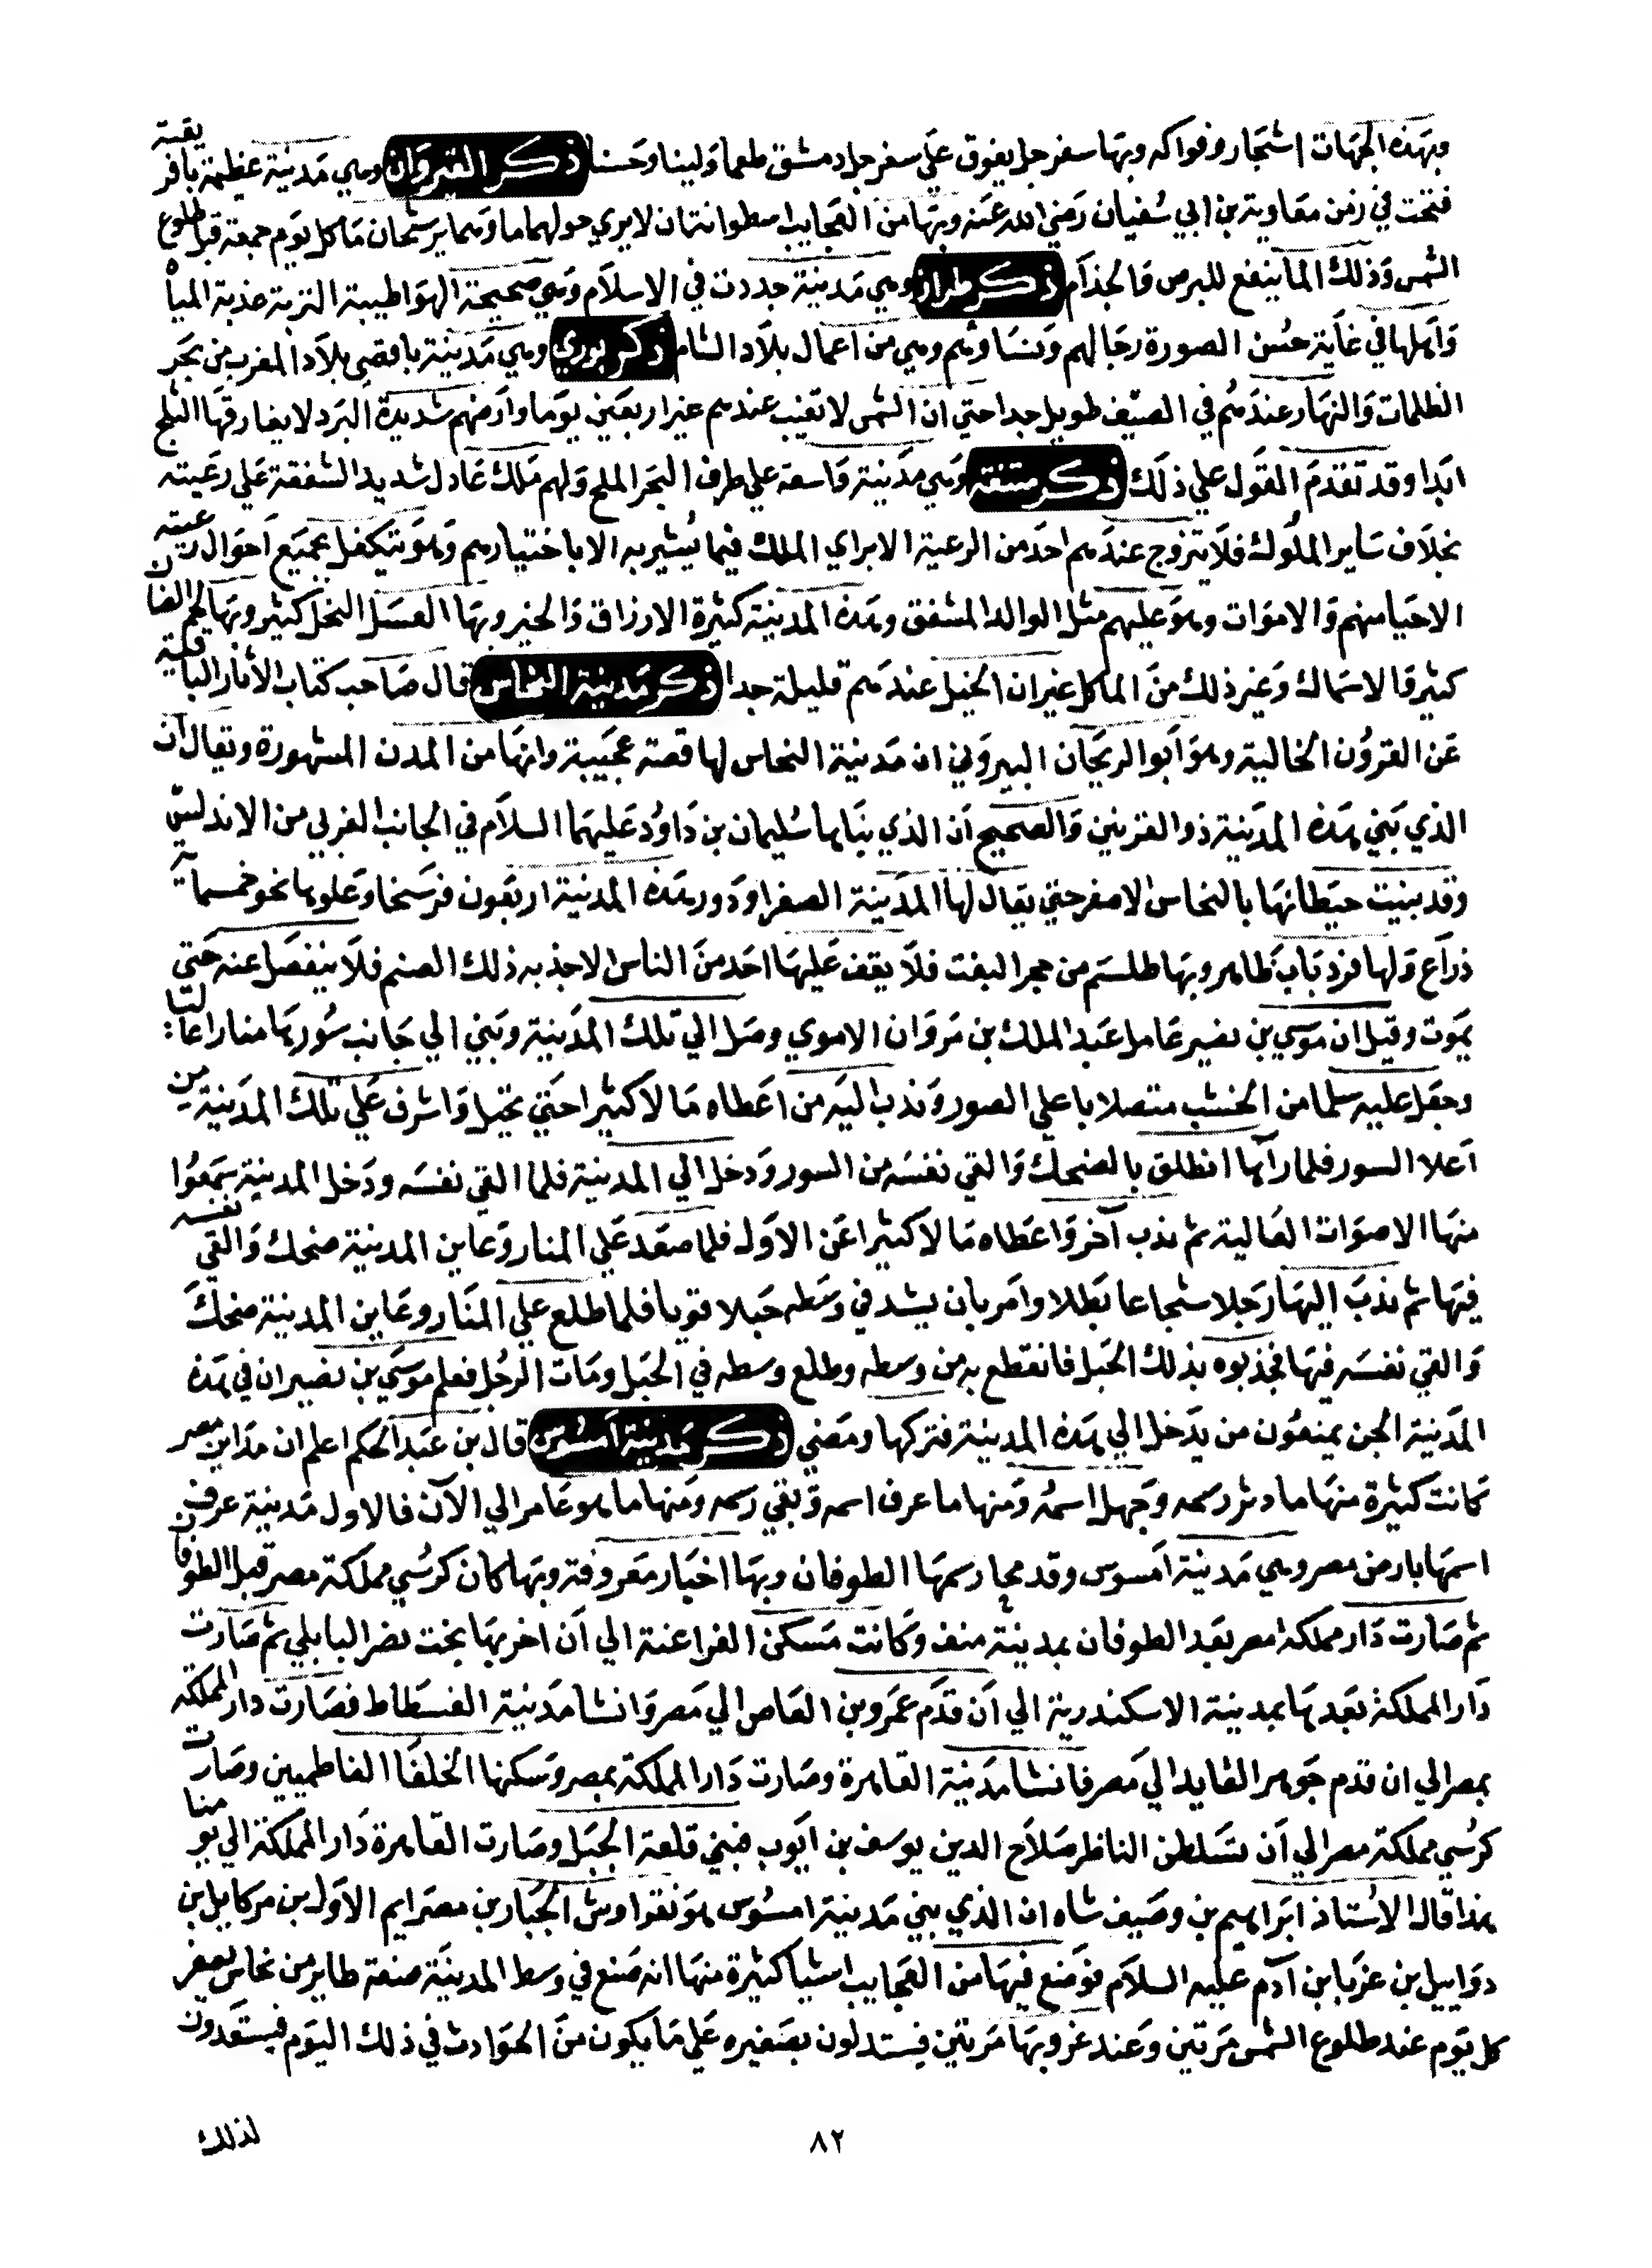 وبهذه الجهات اشجار وفواكه وبها سفرجل يفوق علي سفرجل دمشق طعما ولينا وحسنا ذكر القيروان وهي مدينة عظيمة بافريقية
فتحت في زمن معاوية بن ابي سفيان رضي الله عنه وبها من العجايب اسطوانتان لا يري حولهما ما وهما يرشحان ما كل يوم جمعة قبل طلوع
الشمس وذلك الما ينفع للبرص والجذام ذكر طراز وهي مدينة جددت في الاسلام وهي صحيحة الهوا طيبة التربة عذبة المياه
واهلها في غاية حسن الصورة رجالهم ونساوهم وهي من اعمال بلاد الشاش ذكر بوري وهي مدينة باقصي بلاد المغرب من بحر
الظلمات والنهار عندهم في الصيف طويل جدا حتي ان الشمس لا تغيب عندهم غير اربعين يوما وارضهم شديدة البرد لا يفارقها الثلج
ابدا وقد تقدم القول علي ذلك ذكر وهي مدينة واسعة علي طرف البحر الملح ولهم ملك عادل شديد الشفقة علي رعيته
بخلاف ساير الملوك فلا يتزوج عندهم احد من الرعية الا براي الملك فيما يشير به الا باختيارهم وهو يتكفل بجميع احوال رعيته
الاحيا منهم والاموات وهو عليهم مثل الوالد المشفق وهذه المدينة كثيرة الارزاق والخير وبها العسل النحل كثير وبها لحم الضان
كثير والاسماك وغير ذلك من الماكل غير ان الخيل عندهم قليلة جدا ذكر مدينة النحاس قال صاحب كتاب الاثار الباقية
عن القرون الخالية وهو ابو الريحان البيروني ان مدينة النحاس لها قصة عجيبة وانها من المدن المشهورة ويقال ان
الذي بني هذه المدينة ذو القرنين والصحيح ان الذي بناها سليمان بن داود عليهما السلام في الجانب الغربي من الاندلس
وقد بنيت حيطانها بالنحاس الاصفر حتي يقال لها المدينة الصفرا ودور هذه المدينة اربعون فرسخا وعلوها نحو خمسماية
ذراع ولها فرد باب ظاهر وبها طلسم من حجر البهت فلا يقف عليها احد من الناس الا جذبه ذلك الصنم فلا ينفصل عنه حتي
يموت وقيل ان موسي بن نصير عامل عبد الملك بن مروان الاموي وصل الي تلك المدينة وبني الي جانب سورها منارا عاليا
وجعل عليه سلما من الخشب متصلا باعلي الصور وندب اليه من اعطاه مالا كثيرا حتي تحيل واشرف علي تلك المدينة من
اعلا السور فلما رآها انطلق بالضحك والقي نفسه من السور ودخل الي المدينة فلما القي نفسه ودخل المدينة سمعوا
منها الاصوات العالية ثم ندب آخر واعطاه مالا كثيرا عن الاول فلما صعد علي المنار وعاين المدينة ضحك والقي نفسه
فيها ثم ندب اليها رجلا شجاعا بطلا وامر بان يشد في وسطه حبلا قويا فلما طلع علي المنار وعاين المدينة ضحك
والقي نفسه فيها فجذبوه بذلك الحبل فانقطع به من وسطه وطلع وسطه في الحبل ومات الرجل فعلم موسي بن نصير ان في هذه
المدينة الجن يمنعون من يدخل الي هذه المدينة فتركها ومضي ذكر مدينة امسوس قال بن عبد الحكم اعلم ان مداين مصر
كانت كثيرة منها ما دثر رسمه وجهل اسمه ومنها ما عرف اسمه وبقي رسمه ومنها ما هو عامر الي الآن فالاول مدينة عرف
اسمها بارض مصر وهي مدينة امسوس وقد محا رسمها الطوفان وبها اخبار معروفة وبها كان كرسي مملكة مصر قبل الطوفان
ثم صارت دار مملكة مصر بعد الطوفان بمدينة منف وكانت مسكن الفراعنة الي ان اخربها بخت نصر البابلي ثم صارت
دار المملكة بعدها بمدينة الاسكندرية الي ان قدم عمرو بن العاص الي مصر وانشا مدينة الفسطاط فصارت دار المملكة
بمصر الي ان قدم جوهر القايد الي مصر فانشا مدينة القاهرة وصارت دار المملكة بمصر وسكنها الخلفا الفاطميين وصارت
كرسي مملكة مصر الي ان تسلطن الناظر صلاح الدين يوسف بن ايوب فبني قلعة الجبل وصارت القاهرة دار المملكة الي يومنا
هذا قال الاستاذ ابراهيم بن وصيف شاه ان الذي بني مدينة امسوس هو نقراوش الجبار بن مصرايم الاول بن مركابيل بن
دوابيل بن عزبا بن آدم عليه السلام فوضع فيها من العجايب اشيا كثيرة منها انه صنع في وسط المدينة صنعة طاير من نحاس يصفر
كل يوم عند طلوع الشمس مرتين وعند غروبها مرتين فيستدلون بصفيره علي ما يكون من الحوادث في ذلك اليوم فيستعدون
لذلك
٨٢